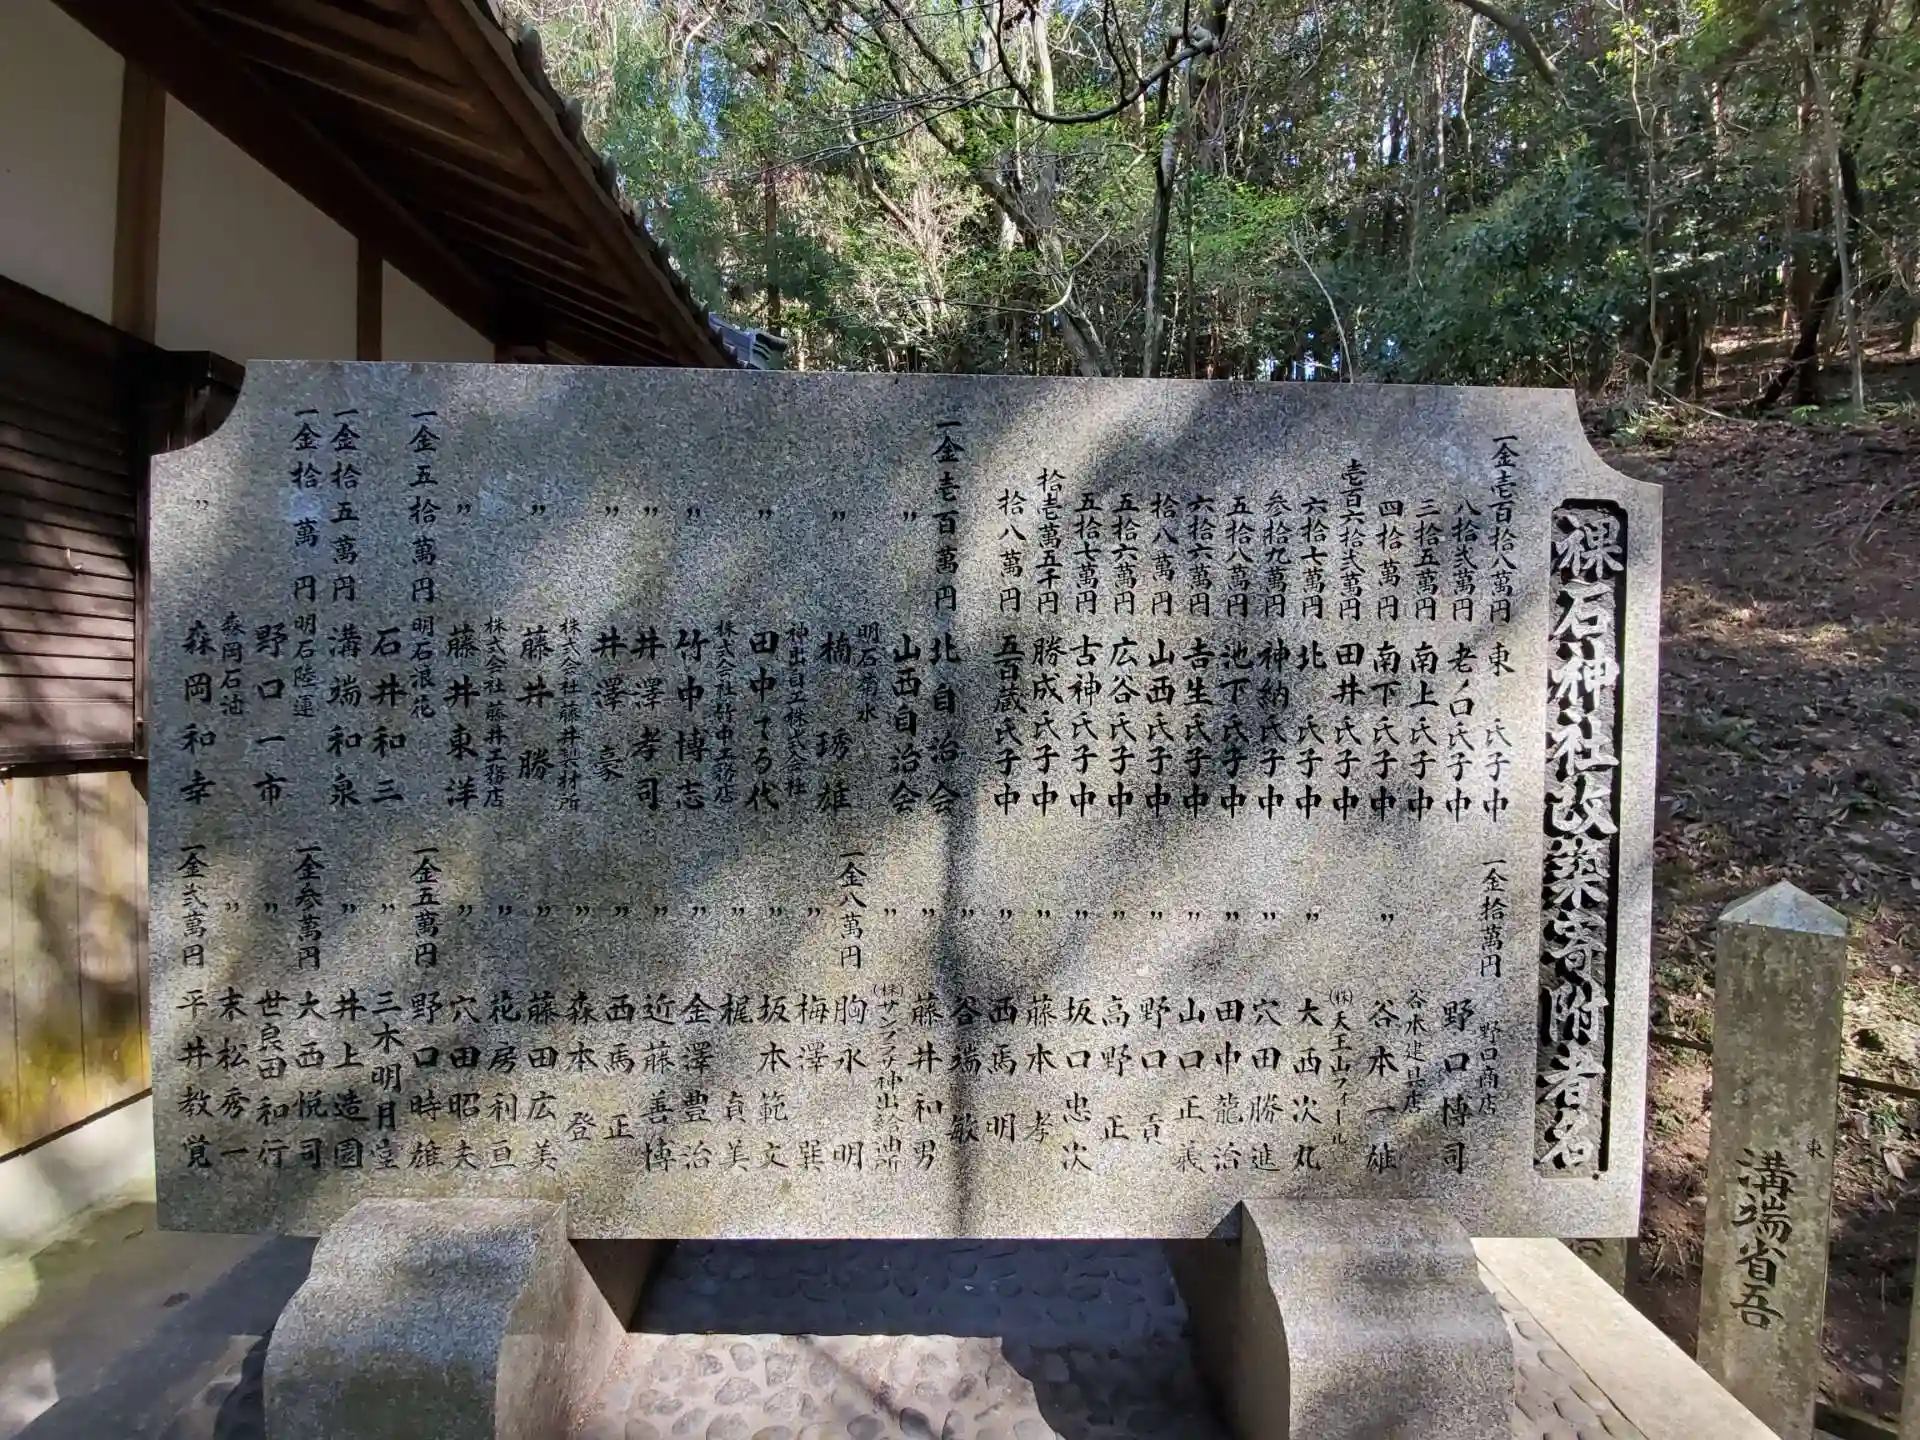 裸石神社改築寄附者名
一金壱百拾八萬円 東 氏子中
八拾弐萬円 老ノ口氏子中
三拾五萬円 南上氏子中
四拾萬円 南下氏子中
壱百六拾弐萬円 田井氏子中
六拾七萬円 北 氏子中
参拾九萬円 神納氏子中
五拾八萬円 池下氏子中
六拾六萬円 吉生氏子中
拾八萬円 山西氏子中
五拾六萬円 広谷氏子中
五拾七萬円 古神氏子中
拾壱萬五千円 勝成氏子中
拾八萬円 五百蔵氏子中
一金壱百萬円 北自治会
〃 山西自治会
明石菊水
〃 橋 琇雄
神出自工株式会社
〃 田中てる代
株式会社竹中工務店
〃 竹中博志
〃 井澤孝司
〃 井澤 豪
株式会社藤井製材所
〃 藤井 勝
株式会社藤井工務店
〃 藤井東洋
一金五拾萬円 明石浪花
石井和三
一金拾五萬円 溝端和泉
一金拾萬円 明石陸運
野口一市
森岡石池
〃 森岡和幸
一金拾萬円 野口商店
野口博司
谷水建具店
〃 谷本一雄
㈱天王山フィールド
〃 大西次丸
〃 穴田勝進
〃 田中龍治
〃 山口正義
〃 野口 貢
〃 高野 正
〃 坂口忠次
〃 藤本 孝
〃 西馬 明
〃 谷端 敏
〃 藤井和男
〃 ㈱サンワンチ神出給油所
一金八萬円 胸永 明
〃 梅澤 巽
〃 坂本範文
〃 梶 貞美
〃 金澤豊治
〃 近藤善博
〃 西馬 正
〃 森本 登
〃 藤田広美
〃 花房利亘
〃 穴田昭夫
一金五萬円 野口時雄
〃 三木明月堂
〃 井上造園
一金参萬円 大西悦司
〃 世良田和行
〃 末松秀一
一金弐萬円 平井教覚
東
溝端省吾